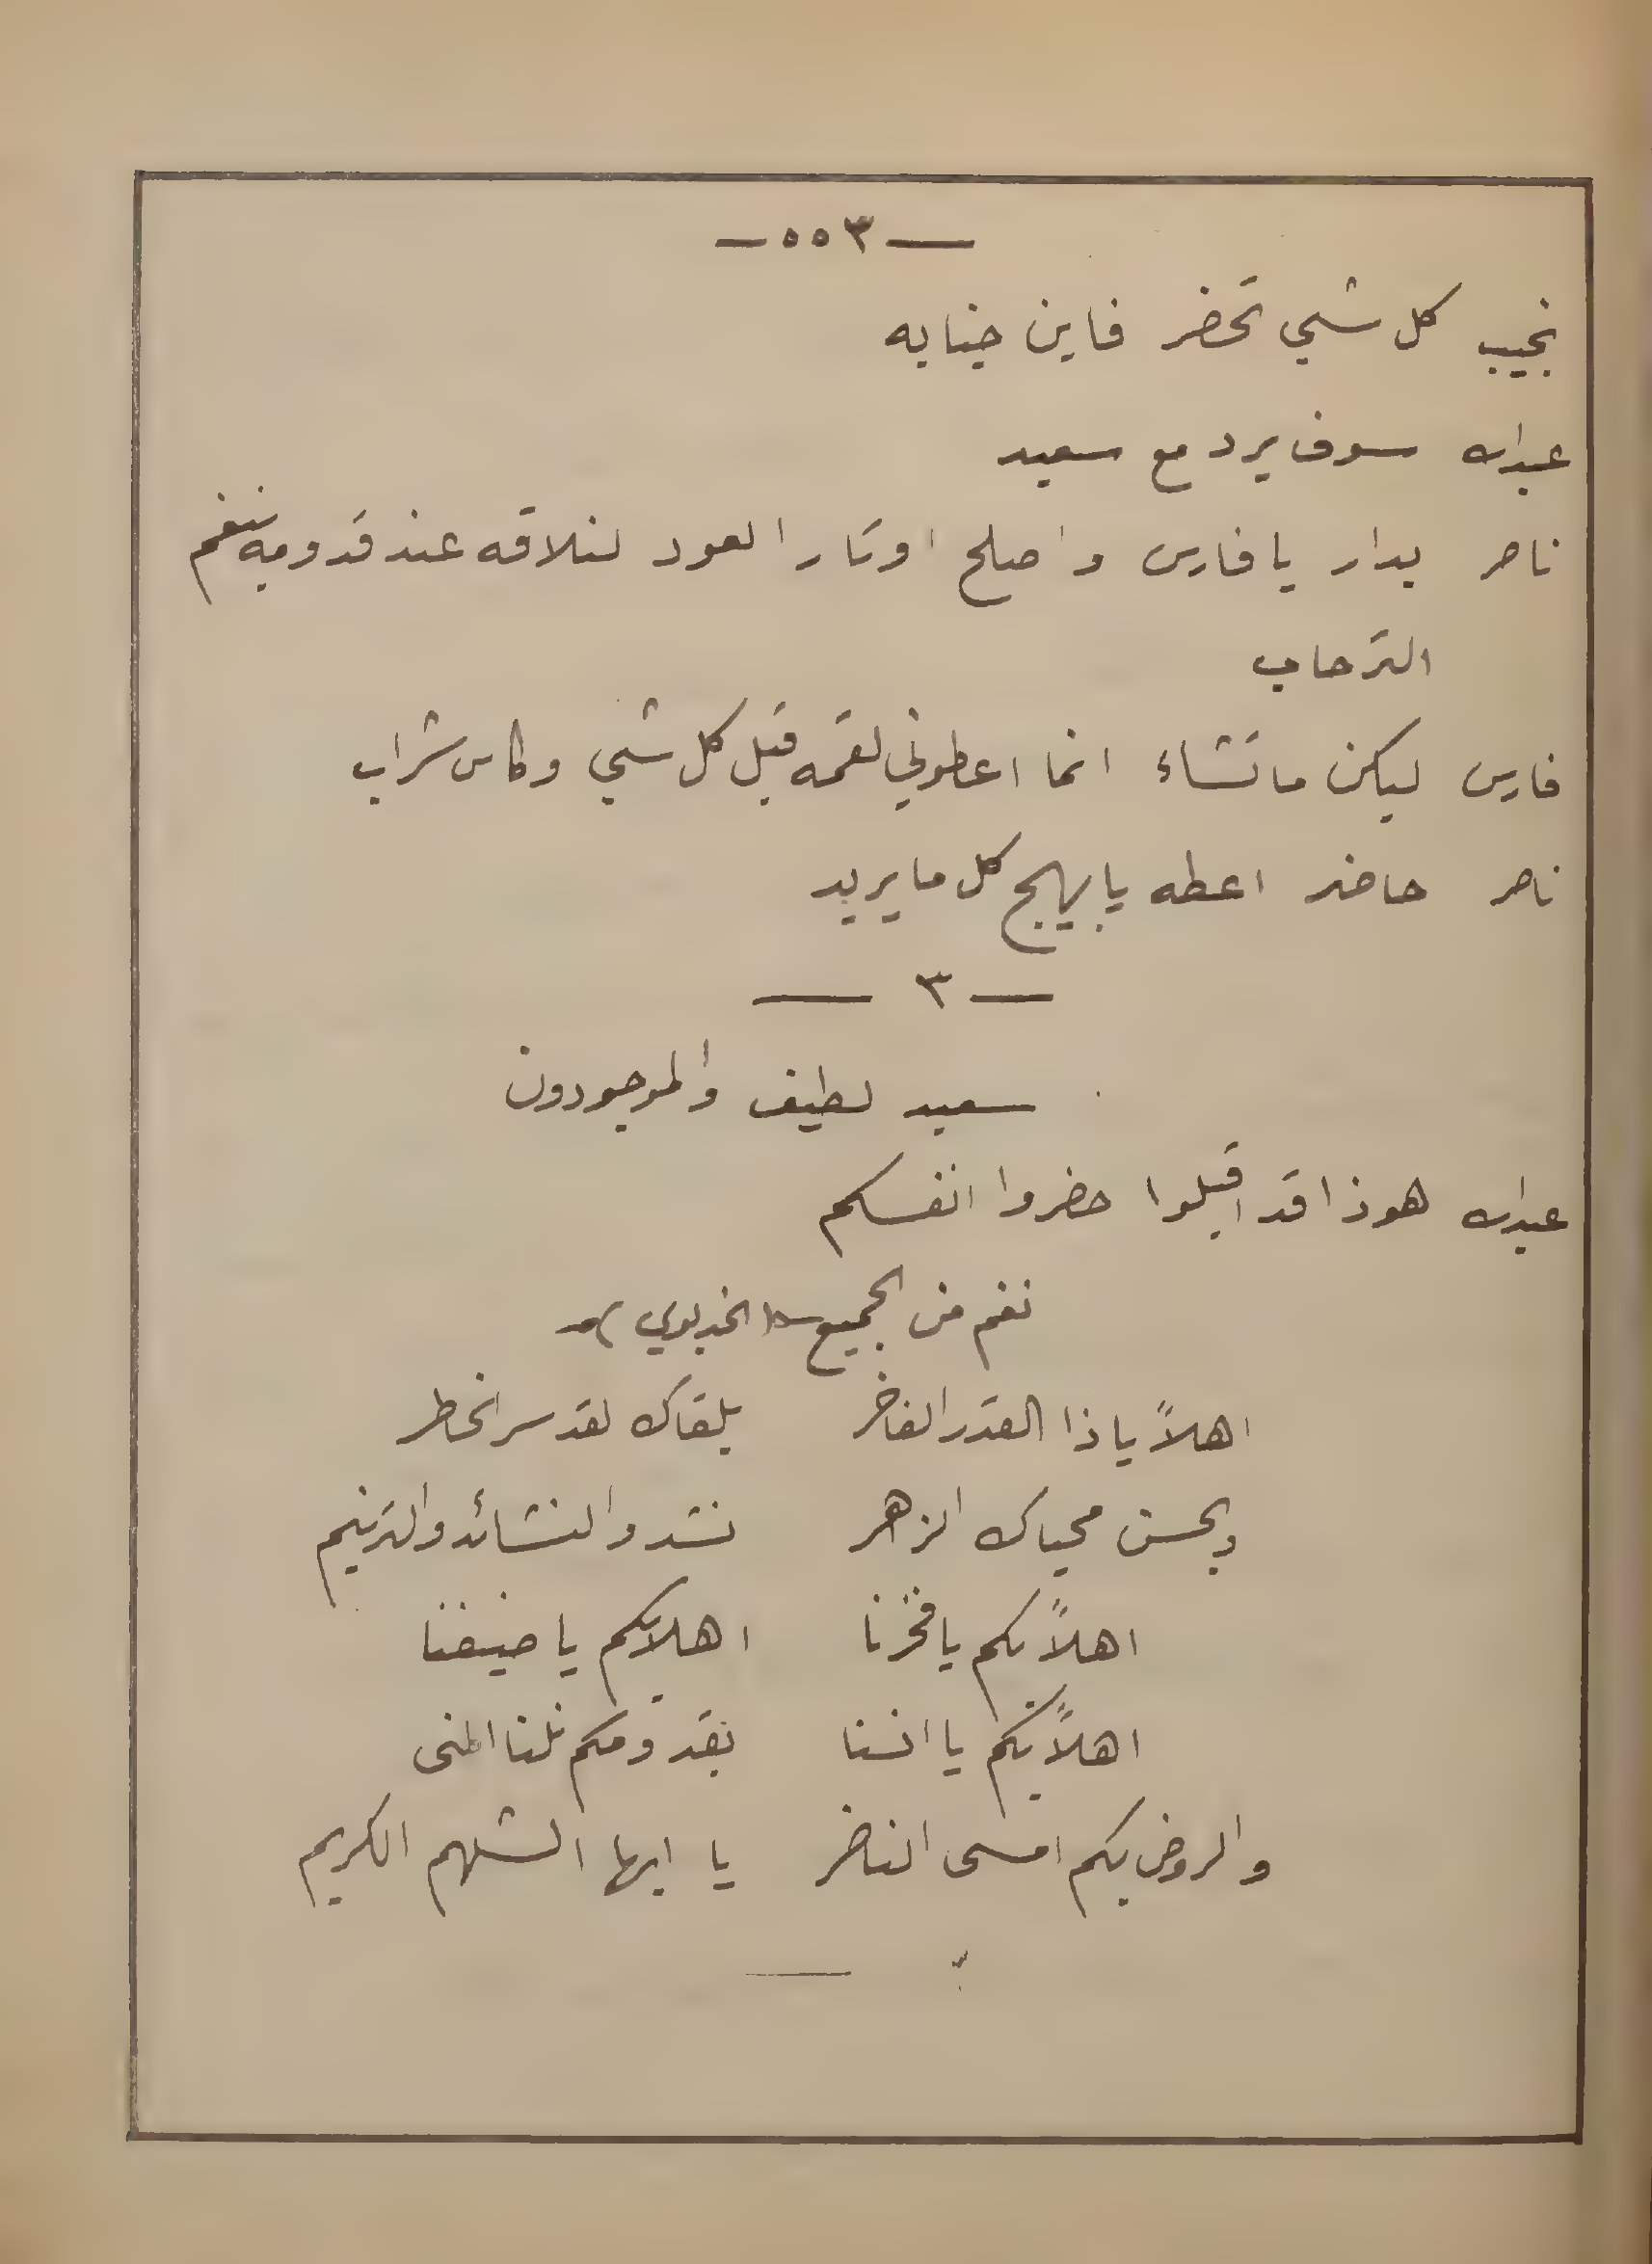 — ٥٥٣ —
نجيب كل شي تحضر فاين جنابه
عبدالله سوف يرد مع سعيد
ناصر بدار يا فارس واصلح اوتار العود لنلاقه عند قدومه بنغم
الترحاب
فارس ليكن ما تشاء انما اعطوني لقمه قبل كل شي وكاس شراب
ناصر حاضر اعطه يا بهيج كل ما يريد
— ٣ —
سعيد لطيف والموجودون
عبدالله هوذا قد اقبلوا حضروا انفسكم
نغم من الجميع (الخديوي)
اهلاً يا ذا القدر الفاخر بلقاك لقد سر الخاطر
وبحسن محياك الزهر نشدو النشائد والترنيم
اهلاً بكم يا فخرنا اهلا بكم يا ضيفنا
اهلاً بكم يا انسنا بقدومكم نلنا المنى
والروض بكم امسى الناضر يا ايها الشهم الكريم